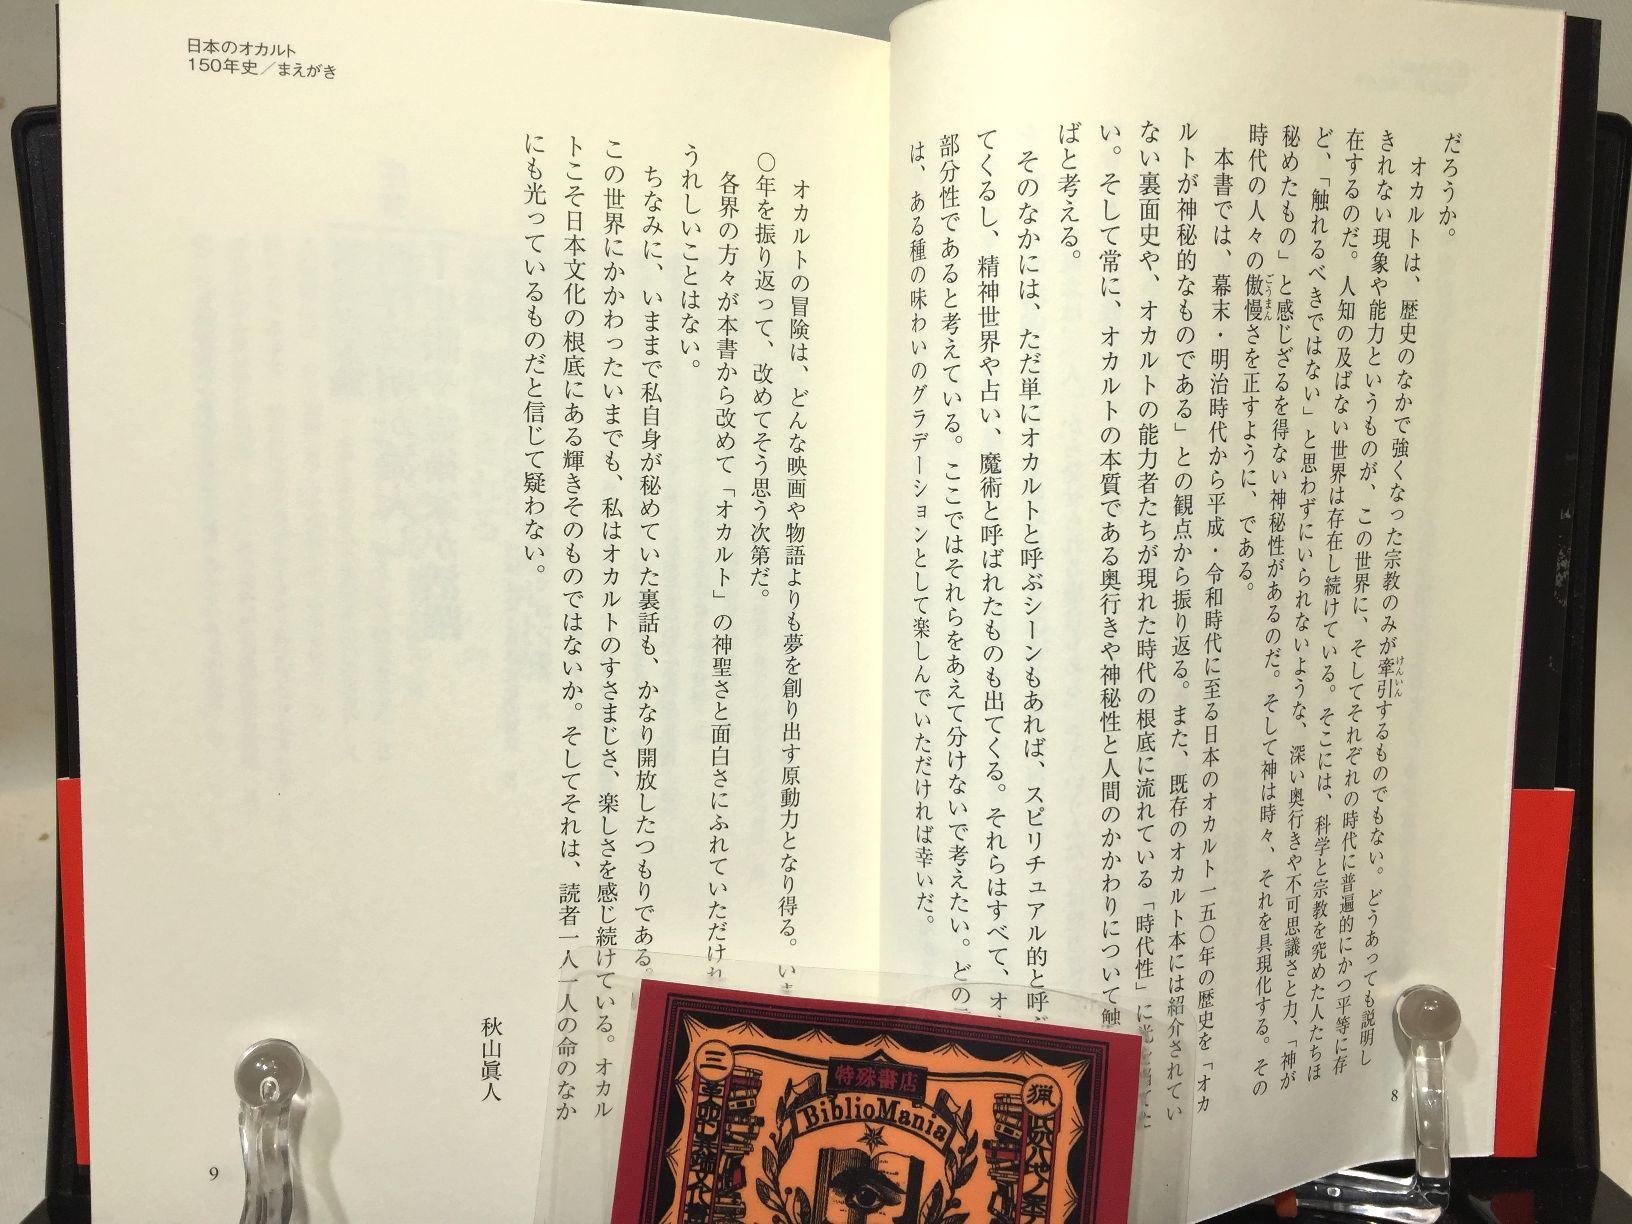 だろうか。
オカルトは、歴史のなかで強くなった宗教のみが牽引するものでもない。どうあっても説明し
けんいん
きれない現象や能力というものが、この世界に、そしてそれぞれの時代に普遍的にかつ平等に存
在するのだ。人知の及ばない世界は存在し続けている。そこには、科学と宗教を究めた人たちほ
ど、「触れるべきではない」と思わずにいられないような、深い奥行きや不可思議さと力、「神が
秘めたもの」と感じざるを得ない神秘性があるのだ。そして神は時々、それを具現化する。その
時代の人々の傲慢さを正すように、である。
ごうまん
本書では、幕末・明治時代から平成・令和時代に至る日本のオカルト一五〇年の歴史を「オカ
ルトが神秘的なものである」との観点から振り返る。また、既存のオカルト本には紹介されてい
ない裏面史や、オカルトの能力者たちが現れた時代の根底に流れている「時代性」に
い。そして常に、オカルトの本質である奥行きや神秘性と人間のかかわりについて触
ばと考える。
そのなかには、ただ単にオカルトと呼ぶシーンもあれば、スピリチュアル的と呼
てくるし、精神世界や占い、魔術と呼ばれたものも出てくる。それらはすべて、オ
部分性であると考えている。ここではそれらをあえて分けないで考えたい。どの
は、ある種の味わいのグラデーションとして楽しんでいただければ幸いだ。
8
日本のオカルト
150年史／まえがき
オカルトの冒険は、どんな映画や物語よりも夢を創り出す原動力となり得る。い
〇年を振り返って、改めてそう思う次第だ。
各界の方々が本書から改めて「オカルト」の神聖さと面白さにふれていただけ
うれしいことはない。
ちなみに、いままで私自身が秘めていた裏話も、かなり開放したつもりである。
この世界にかかわったいまでも、私はオカルトのすさまじさ、楽しさを感じ続けている。オカル
トこそ日本文化の根底にある輝きそのものではないか。そしてそれは、読者一人一人の命のなか
にも光っているものだと信じて疑わない。
秋山眞人
9
特殊書店
BiblioMania
三
猟